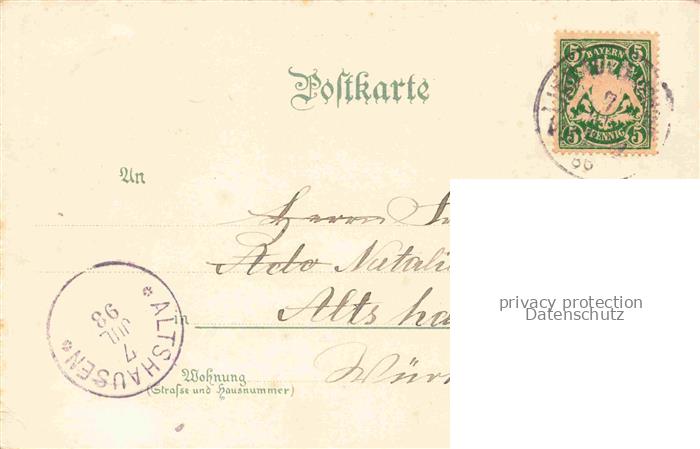 Postkarte
5 BAYERN 5
5 PFENNIG 5
7
98
An
Herrn
Ado Natalie
Altsha
in
Wür
Wohnung
(Strasse und Hausnummer)
* ALTSHAUSEN *
7
JUL
98
privacy protection
Datenschutz